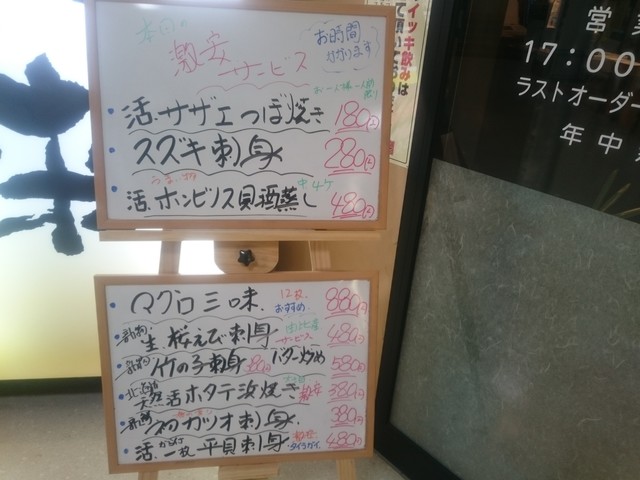 本日
激安
サービス
お時間
かかります
お一人様一人前
活.サザエつぼ焼き 180円
スズキ刺身 280円
活.ホンビノス貝酒蒸し 480円
マグロ三昧. 12枚. おすすめ 880円
生桜えび刺身 サービス 480円
竹の子刺身 バター炒め 580円
北海道
天然活ホタテ浜焼き 激安 380円
初ガツオ刺身 380円
活.一枚平貝刺身 タイラガイ. 480円
イッキ飲みは
営業
17:00
ラストオーダ
年中